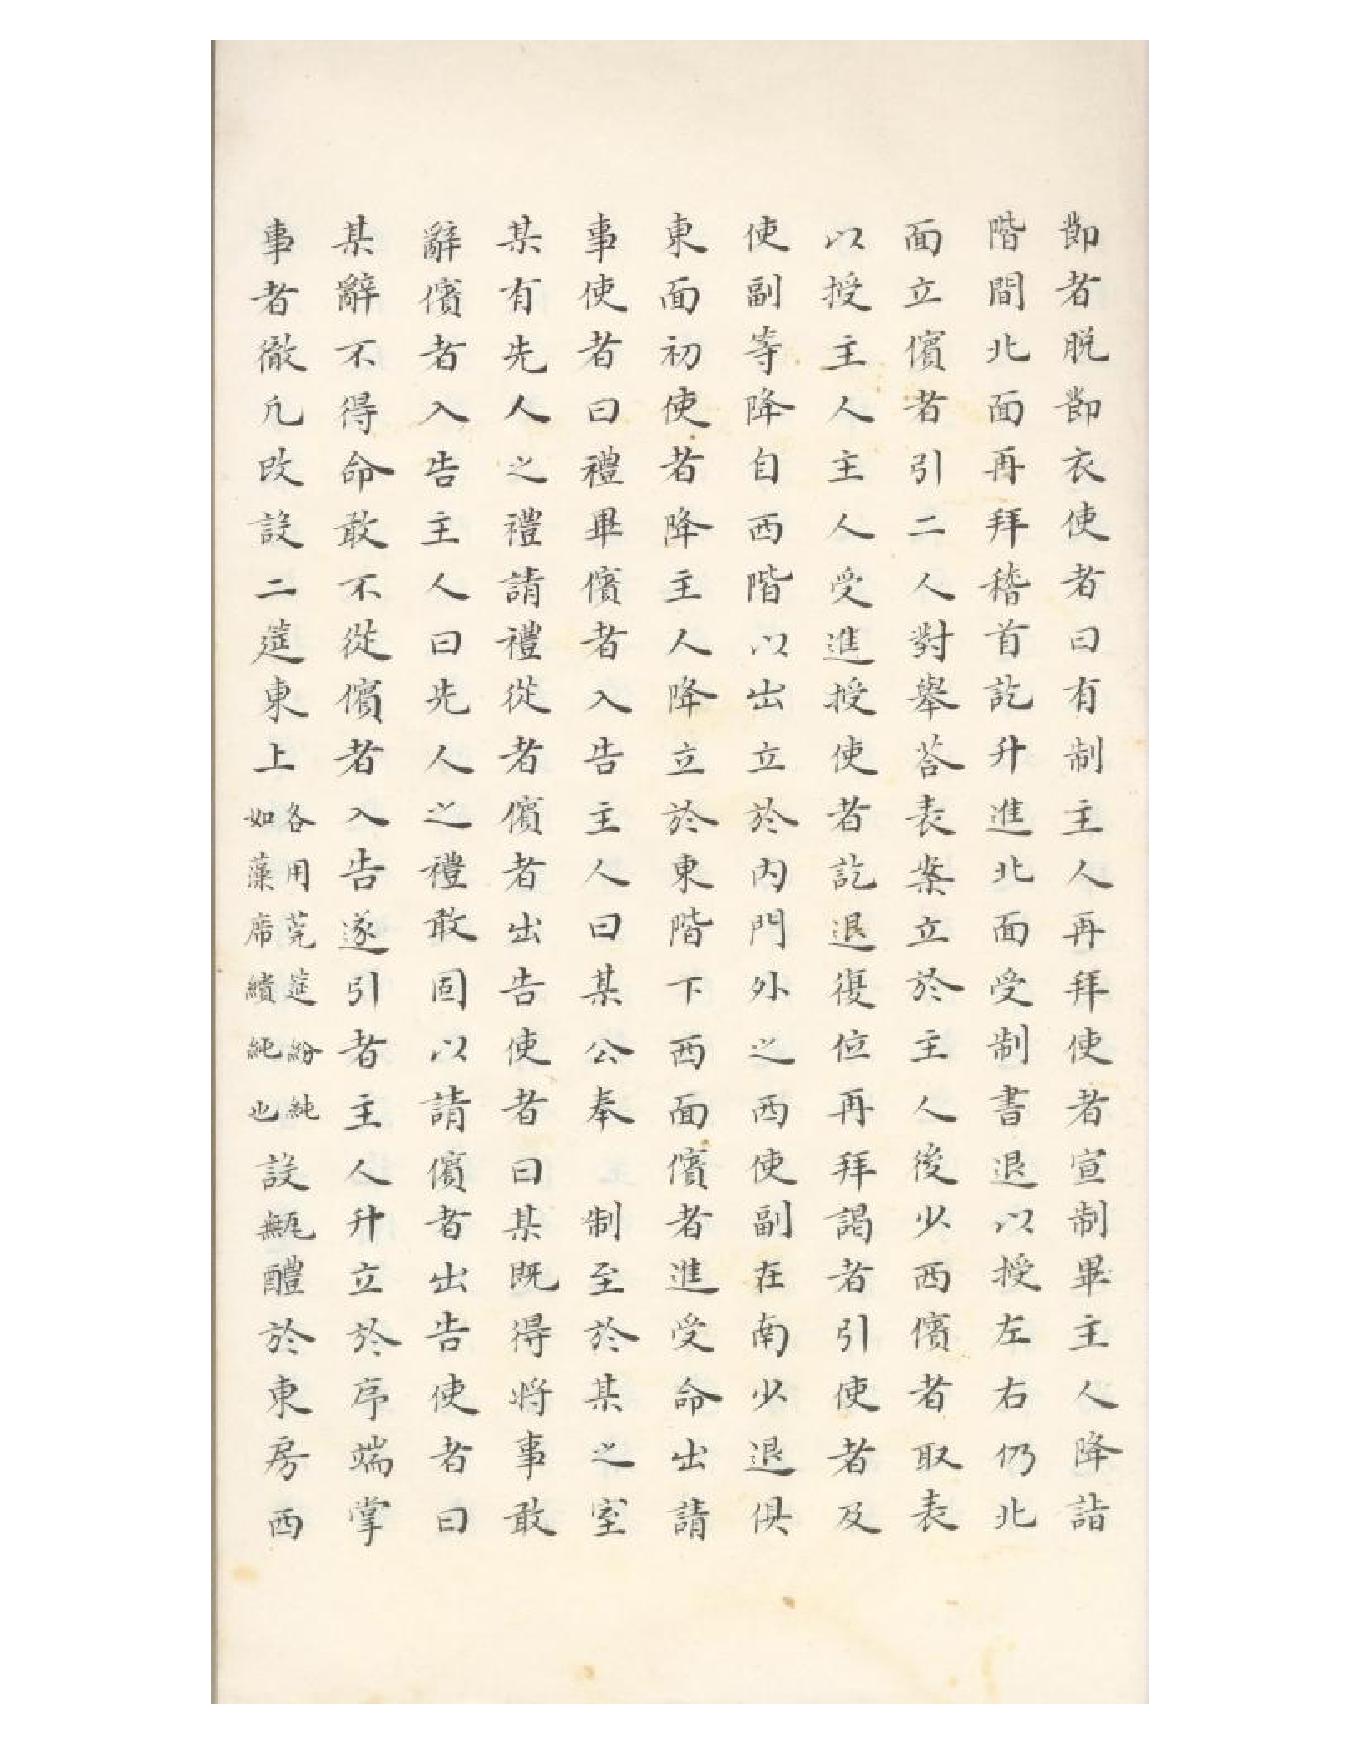 節者脱節衣使者曰有制主人再拜使者宣制畢主人降詣
階間北面再拜稽首訖升進北面受制書退以授左右仍北
面立儐者引二人對舉荅表案立於主人後少西儐者取表
以授主人主人受進授使者訖退復位再拜謁者引使者及
使副等降自西階以出立於内門外之西使副在南少退俱
東面初使者降主人降立於東階下西面儐者進受命出請
事使者曰禮畢儐者入告主人曰某公奉　制至於某之室
某有先人之禮請禮從者儐者出告使者曰某既得將事敢
辭儐者入告主人曰先人之禮敢固以請儐者出告使者曰
某辭不得命敢不從儐者入告遂引者主人升立於序端掌
事者徹几改設二筵東上各用莞筵紛純如藻席繢純也設甒醴於東房西